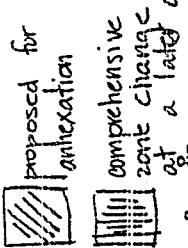 proposed for
annexation
comprehensive
zone change
at a later